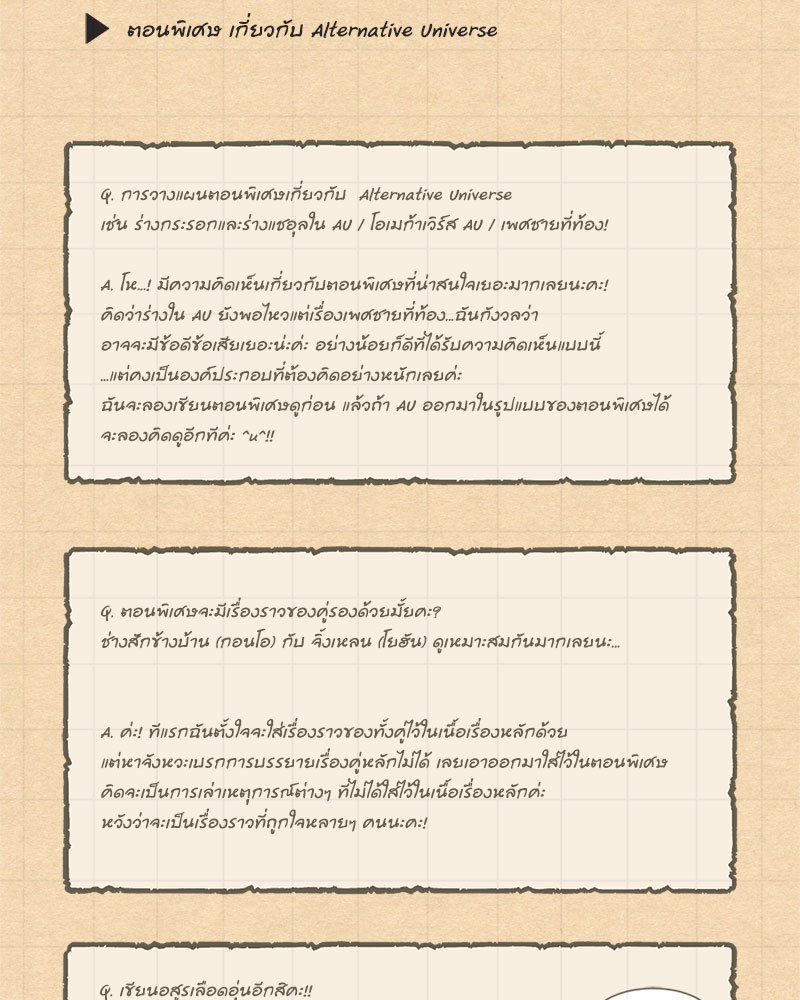 ตอนพิเศษ เกี่ยวกับ Alternative Universe
Q. การวางแผนตอนพิเศษเกี่ยวกับ Alternative Universe
เช่น ร่างกระรอกและร่างแชอุลใน AU / โอเมก้าเวิร์ส AU / เพศชายที่ท้อง!
A. โห...! มีความคิดเห็นเกี่ยวกับตอนพิเศษที่น่าสนใจเยอะมากเลยนะคะ!
คิดว่าร่างใน AU ยังพอไหวแต่เรื่องเพศชายที่ท้อง...ฉันกังวลว่า
อาจจะมีข้อดีข้อเสียเยอะน่ะค่ะ อย่างน้อยก็ดีที่ได้รับความคิดเห็นแบบนี้
...แต่คงเป็นองค์ประกอบที่ต้องคิดอย่างหนักเลยค่ะ
ฉันจะลองเขียนตอนพิเศษดูก่อน แล้วถ้า AU ออกมาในรูปแบบของตอนพิเศษได้
จะลองคิดดูอีกทีค่ะ ^u^!!
Q. ตอนพิเศษจะมีเรื่องราวของคู่รองด้วยมั้ยคะ?
ช่างสักข้างบ้าน (กอนโอ) กับ จิ้งเหลน (โยฮัน) ดูเหมาะสมกันมากเลยนะ...
A. ค่ะ! ทีแรกฉันตั้งใจจะใส่เรื่องราวของทั้งคู่ไว้ในเนื้อเรื่องหลักด้วย
แต่หาจังหวะเบรกการบรรยายเรื่องคู่หลักไม่ได้ เลยเอาออกมาใส่ไว้ในตอนพิเศษ
คิดจะเป็นการเล่าเหตุการณ์ต่างๆ ที่ไม่ได้ใส่ไว้ในเนื้อเรื่องหลักค่ะ
หวังว่าจะเป็นเรื่องราวที่ถูกใจหลายๆ คนนะคะ!
Q. เขียนอสูรเลือดอุ่นอีกสิคะ!!